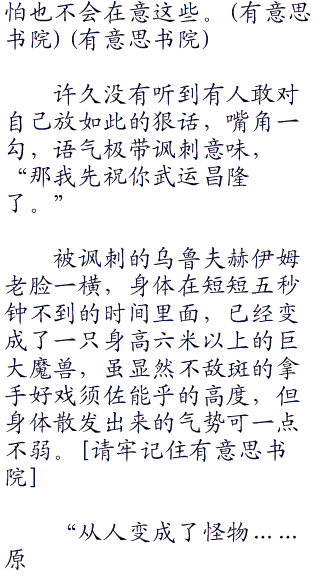 怕也不会在意这些。(有意思
书院) (有意思书院)
许久没有听到有人敢对
自己放如此的狠话，嘴角一
勾，语气极带讽刺意味，
“那我先祝你武运昌隆
了。”
被讽刺的乌鲁夫赫伊姆
老脸一横，身体在短短五秒
钟不到的时间里面，已经变
成了一只身高六米以上的巨
大魔兽，虽显然不敌斑的拿
手好戏须佐能乎的高度，但
身体散发出来的气势可一点
不弱。[请牢记住有意思书
院]
“从人变成了怪物……
原